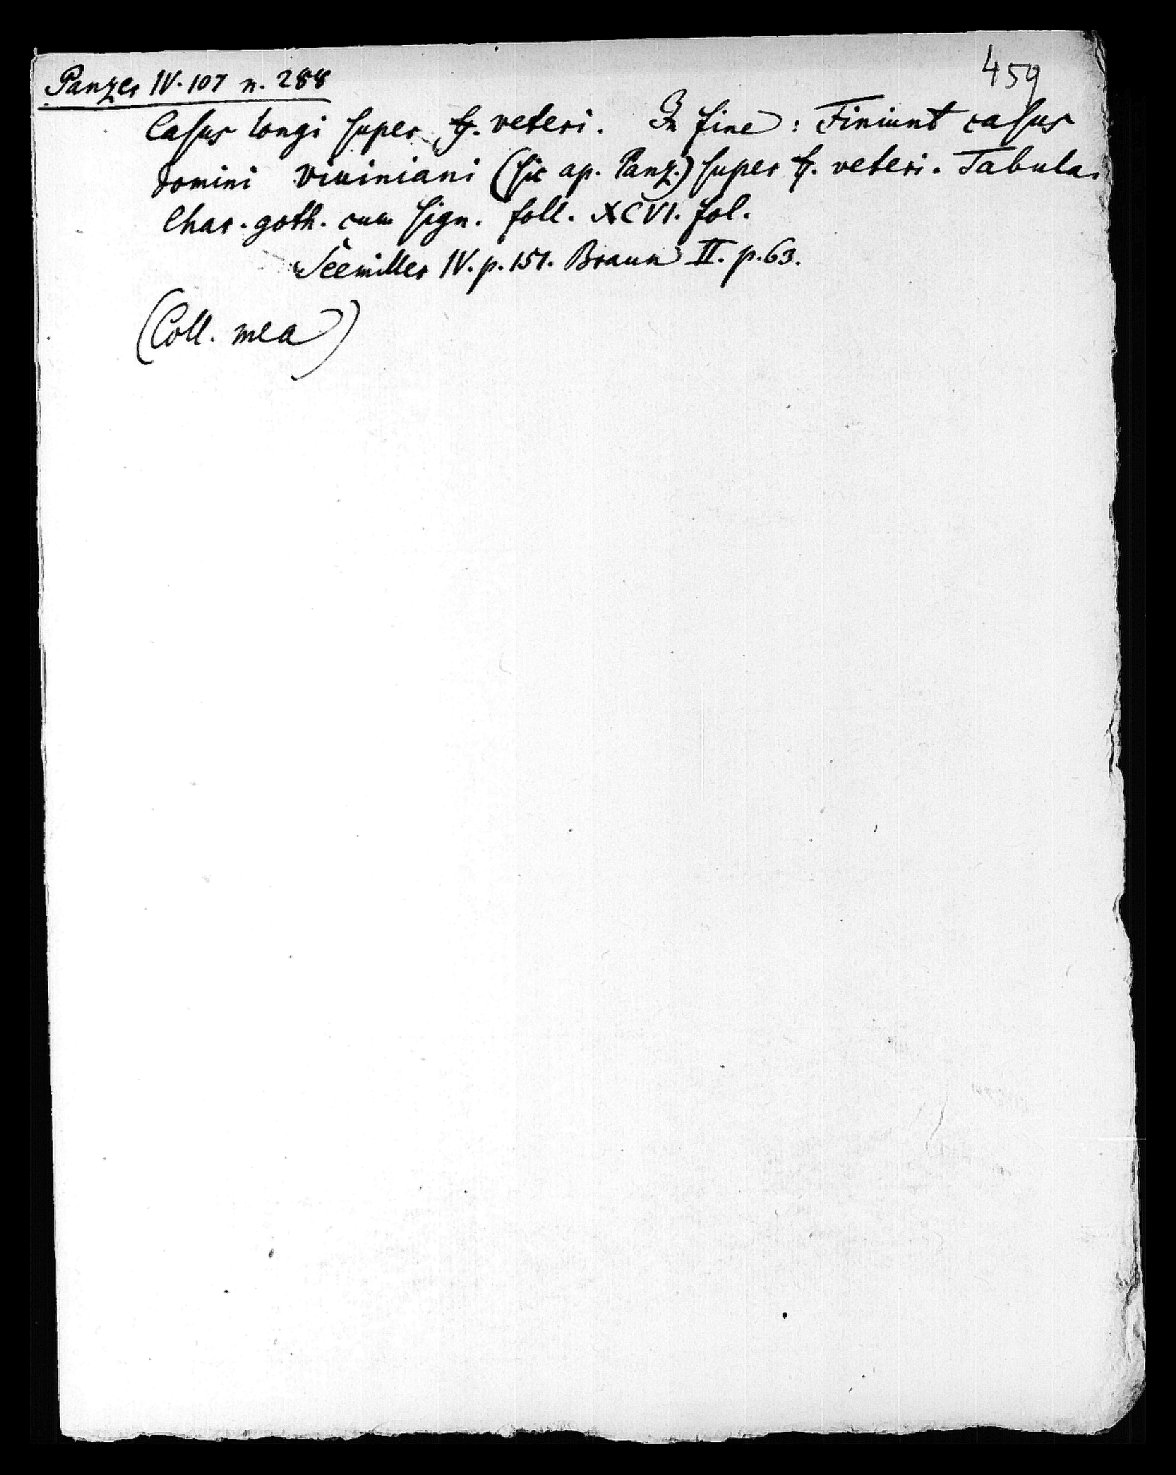 459
Panzer IV. 107 n. 288
Casus longi super ff. veteri. In fine: Finiunt casus
domini viuiniani (sic ap. Panz.) super ff. veteri. Tabula.
Char. goth. cum sign. foll. XCVI. fol.
Seemiller IV. p. 151. Braun II. p. 63.
(Coll. mea)